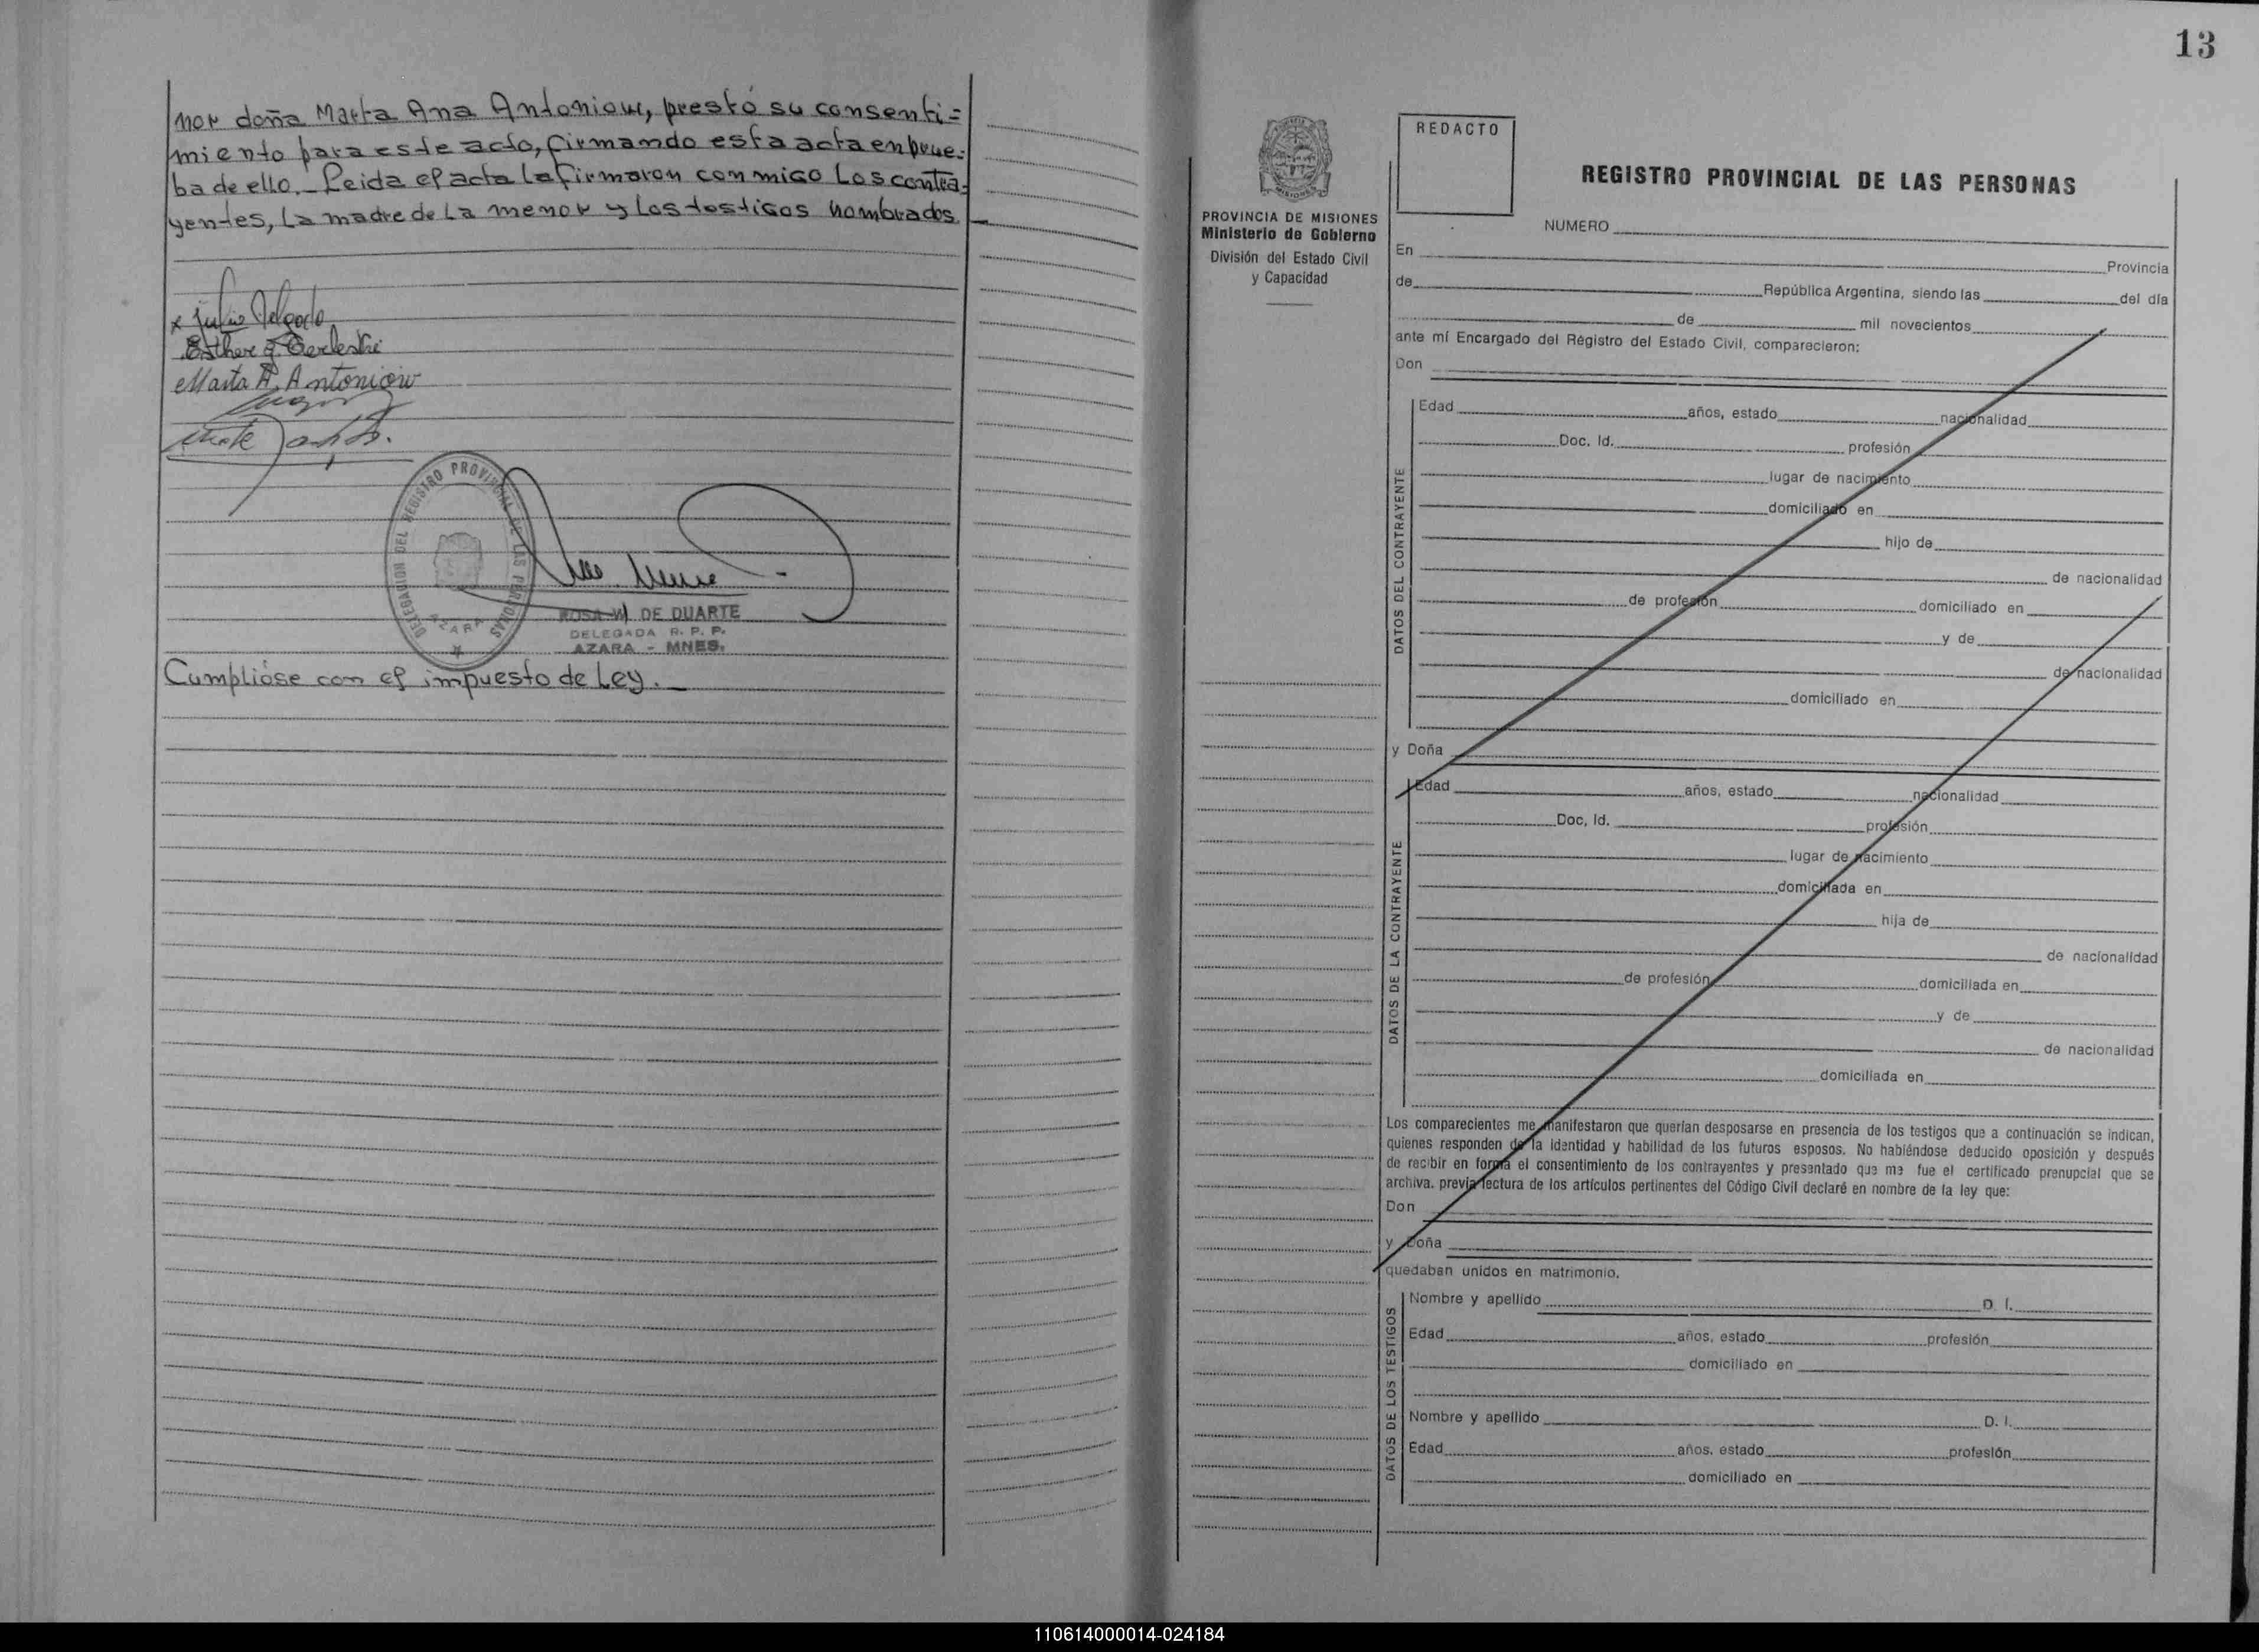 nor doña Marta Ana Antoniow, prestó su consenti=
miento para este acto, firmando esta acta en prue-
ba de ello._ Leida el acta la firmaron conmigo los contra-
yentes, la madre de la menor y los testigos nombrados._
x Julio Delgado
Esther
Marta A. Antoniow
DELEGACION DEL REGISTRO PROVINCIAL DE LAS PERSONAS
AZARA
ROSA W DE DUARTE
DELEGADA R. P. P.
AZARA - MNES.
Cumplióse con el impuesto de Ley._
13
REDACTO
REGISTRO PROVINCIAL DE LAS PERSONAS
MISIONES
PROVINCIA DE MISIONES
Ministerio de Gobierno
División del Estado Civil
y Capacidad
NUMERO
En Provincia
de República Argentina, siendo las del día
de mil novecientos
ante mí Encargado del Registro del Estado Civil, comparecieron:
Don
DATOS DEL CONTRAYENTE
Edad años, estado nacionalidad
Doc. Id. profesión
lugar de nacimiento
domiciliado en
hijo de
de nacionalidad
de profesión domiciliado en
y de
de nacionalidad
domiciliado en
y Doña
DATOS DE LA CONTRAYENTE
Edad años, estado nacionalidad
Doc, Id. profesión
lugar de nacimiento
domiciliada en
hija de
de nacionalidad
de profesión domiciliada en
y de
de nacionalidad
domiciliada en
Los comparecientes me manifestaron que querían desposarse en presencia de los testigos que a continuación se indican,
quienes responden de la identidad y habilidad de los futuros esposos. No habiéndose deducido oposición y después
de recibir en forma el consentimiento de los contrayentes y presentado que me fue el certificado prenupcial que se
archiva. previa lectura de los artículos pertinentes del Código Civil declaré en nombre de la ley que:
Don
y Doña
quedaban unidos en matrimonio.
DATOS DE LOS TESTIGOS
Nombre y apellido D. I.
Edad años, estado profesión
domiciliado en
Nombre y apellido D. I.
Edad años, estado profesión
domiciliado en
110614000014-024184